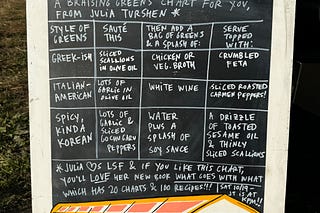 A BRAISING GREENS CHART FOR YOU,
FROM JULIA TURSHEN *
STYLE OF GREENS
SAUTÉ THIS
THEN ADD A BAG OF GREENS & A SPLASH OF:
SERVE TOPPED WITH:
GREEK-ISH
SLICED SCALLIONS IN OLIVE OIL
CHICKEN OR VEG. BROTH
CRUMBLED FETA
ITALIAN-AMERICAN
LOTS OF GARLIC IN OLIVE OIL
WHITE WINE
SLICED ROASTED PEPPERS!
SPICY, KINDA KOREAN
LOTS OF GARLIC & SLICED GOCHUGARU PEPPERS
WATER PLUS A SPLASH OF SOY SAUCE
A DRIZZLE OF TOASTED SESAME OIL & THINLY SLICED SCALLIONS
*JULIA ♡S LSF & IF YOU LIKE THIS CHART,
YOU'LL LOVE HER NEW BOOK WHAT GOES WITH WHAT
WHICH HAS 20 CHARTS & 100 RECIPES!!!
SAT 10/19